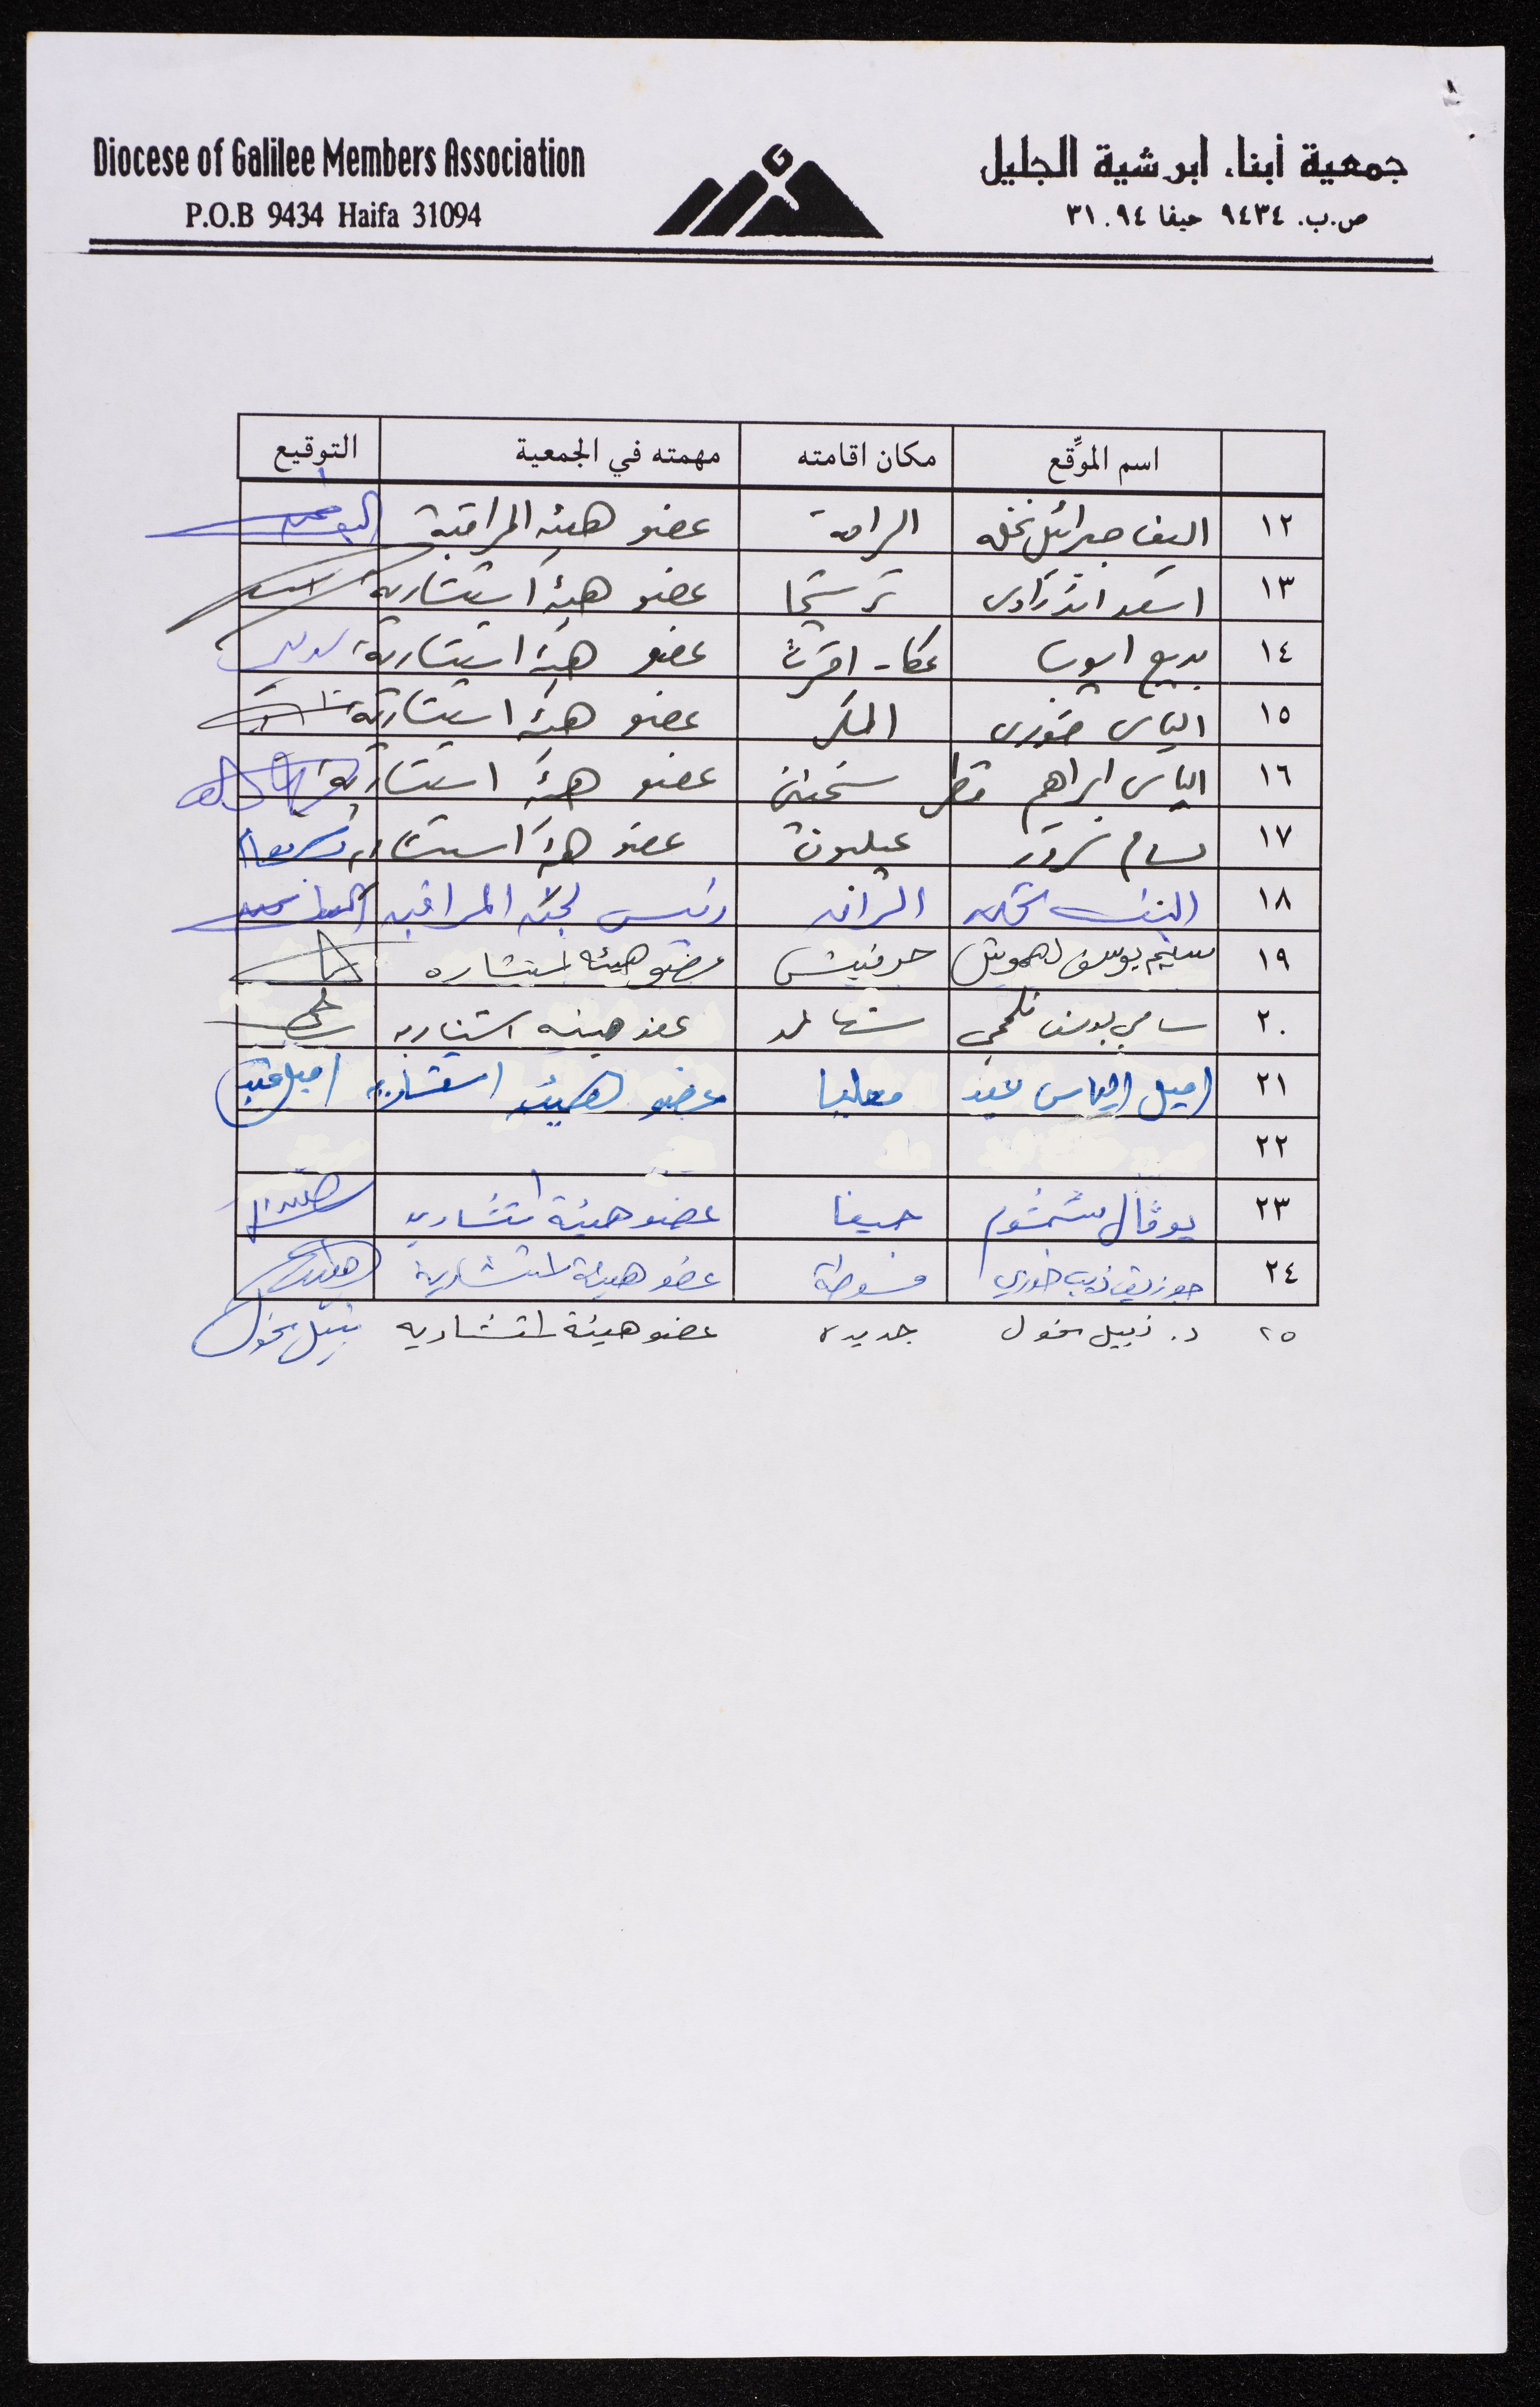 Diocese of Galilee Members Association
P.O.B 9434 Haifa 31094
جمعية أبناء ابرشية الجليل
ص.ب. ٩٤٣٤ حيفا ٣١٠٩٤
اسم الموقِّع مكان اقامته مهمته في الجمعية التوقيع
١٢ اليف جبرائيل نخله الرامة عضو هيئة المراقبة
١٣ اسعد ترشيحا عضو هيئة استشارية
١٤ بديع ايوب عكا - اقرث عضو هيئة استشارية
١٥ الياس خوري المكر عضو هيئة استشارية
١٦ الياس ابراهيم سخنين عضو هيئة استشارية
١٧ بسام عيلبون عضو هيئة
١٨ نخله الرامه رئيس لجنة المراقبه
١٩ سليم يوسف حرفيش عضو هيئه استشاره
٢٠ سامي يوسف عضو هيئه استشاريه
٢١ اميل الياس عيد معليا عضو هيئة استشاريه
٢٢
٢٣ يوڤال حيفا عضو هيئة استشاريه
٢٤ جوزيف ذيب خوري فسوطة عضو هيئة استشارية
٢٥ د. نبيل مخول جديده عضو هيئة استشاريه نبيل مخول